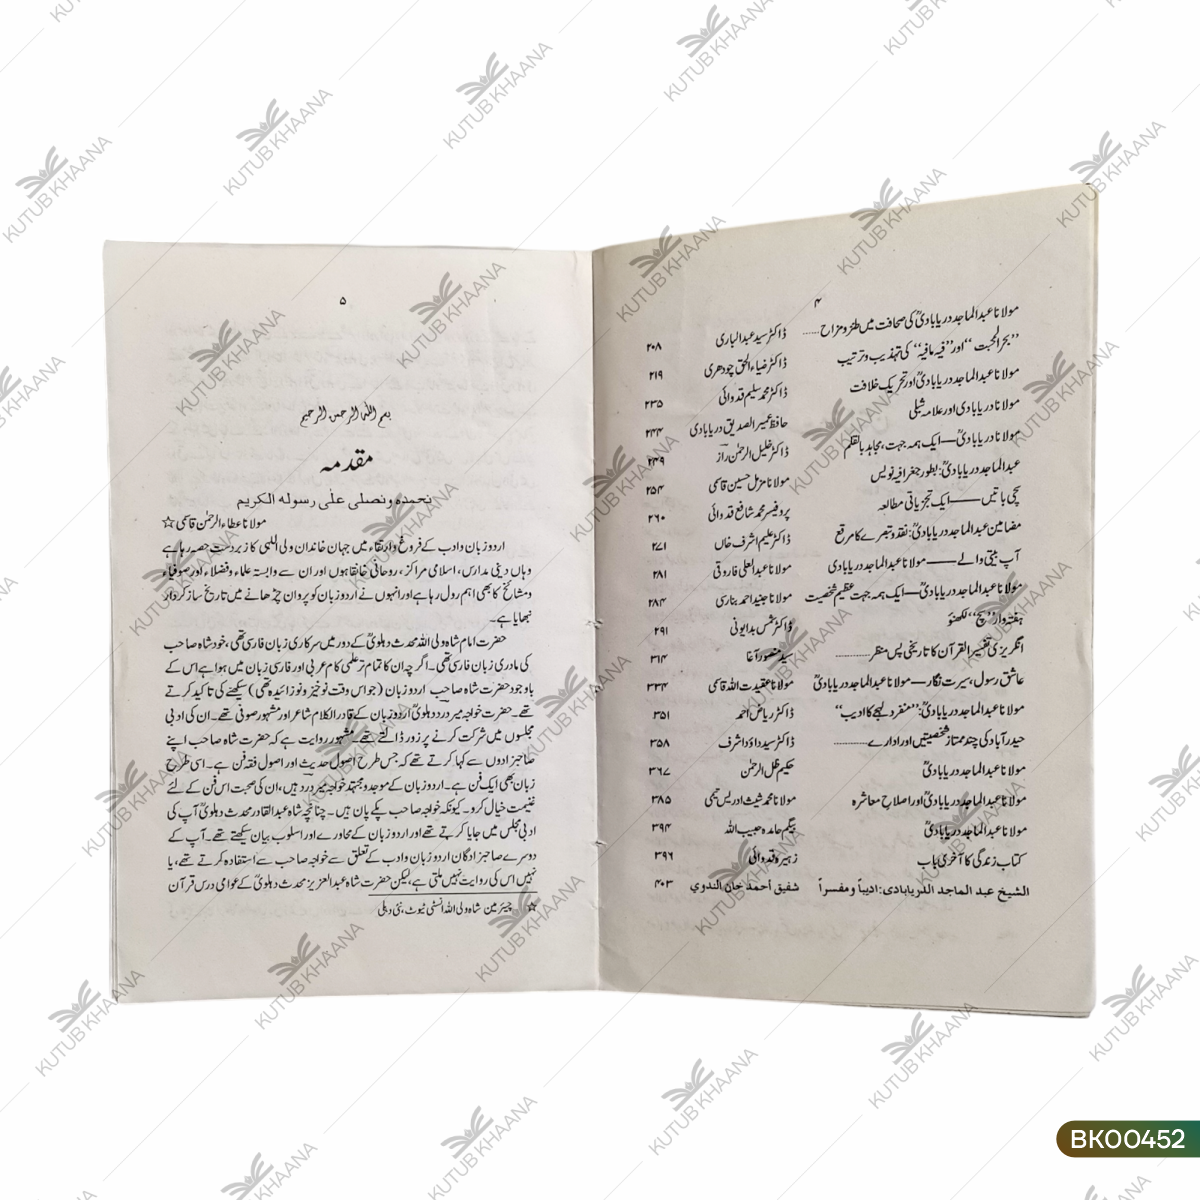 ۴
مولانا عبدالماجد دریابادیؒ کی صحافت میں طنز و مزاح ...... ڈاکٹر سید عبدالباری ۲۰۸
”بحر المحبت“ اور ”فیہ مافیہ“ کی تہذیب و ترتیب ڈاکٹر ضیاء الحق چودھری ۲۱۹
مولانا عبدالماجد دریابادیؒ اور تحریک خلافت ڈاکٹر محمد سلیم قدوائی ۲۳۵
مولانا دریابادی اور علامہ شبلی حافظ عمیر الصدیق دریابادی ۲۴۴
مولانا دریابادیؒ — ایک ہمہ جہت، مجاہد بالقلم ڈاکٹر خلیل الرحمٰن راز ۲۴۹
عبدالماجد دریابادیؒ: بطور جغرافیہ نویس مولانا مزمل حسین قاسمی ۲۵۴
سچی باتیں — ایک تجزیاتی مطالعہ پروفیسر محمد شافع قدوائی ۲۶۰
مضامین عبدالماجد دریابادیؒ: نقد و تبصرے کا مرقع ڈاکٹر علیم اشرف خاں ۲۷۱
آپ بیتی والے — مولانا عبدالماجد دریابادی مولانا عبدالعلی فاروقی ۲۸۱
مولانا عبدالماجد دریابادیؒ — ایک ہمہ جہت عظیم شخصیت مولانا جنید احمد بنارسی ۲۸۴
ہفتہ وار ”سچ“ لکھنؤ ڈاکٹر شمس بدایونی ۲۹۱
انگریزی تفسیر القرآن کا تاریخی پس منظر ............ سید منصور آغا ۳۱۴
عاشق رسول، سیرت نگار — مولانا عبدالماجد دریابادیؒ مولانا عقیدت اللہ قاسمی ۳۳۴
مولانا عبدالماجد دریابادیؒ: ”منفرد لہجے کا ادیب“ ڈاکٹر ریاض احمد ۳۵۱
حیدرآباد کی چند ممتاز شخصیتیں اور ادارے ............ ڈاکٹر سید داؤد اشرف ۳۵۸
مولانا عبدالماجد دریابادیؒ حکیم ظل الرحمٰن ۳۶۷
مولانا عبدالماجد دریابادیؒ اور اصلاح معاشرہ مولانا محمد شیث ادریس تیمی ۳۸۵
مولانا عبدالماجد دریابادیؒ بیگم حامدہ حبیب اللہ ۳۹۴
کتاب زندگی کا آخری باب زہیرہ قدوائی ۳۹۶
الشیخ عبد الماجد الدریابادی: ادیباً و مفسراً شفیق أحمد خان الندوی ۴۰۳
۵
بسم اللہ الرحمن الرحیم
مقدمہ
نحمدہ ونصلی علٰی رسولہ الکریم
مولانا عطاء الرحمٰن قاسمی ☆
اردو زبان و ادب کے فروغ و ارتقاء میں جہاں خاندان ولی اللہی کا زبردست حصہ رہا ہے
وہاں دینی مدارس، اسلامی مراکز، روحانی خانقاہوں اور ان سے وابستہ علماء و فضلاء اور صوفیاء
و مشائخ کا بھی اہم رول رہا ہے اور انہوں نے اردو زبان کو پروان چڑھانے میں تاریخ ساز کردار
نبھایا ہے۔
حضرت امام شاہ ولی اللہ محدث دہلویؒ کے دور میں سرکاری زبان فارسی تھی، خود شاہ صاحب
کی مادری زبان فارسی تھی۔ اگرچہ ان کا تمام تر علمی کام عربی اور فارسی زبان میں ہوا ہے اس کے
باوجود حضرت شاہ صاحب اردو زبان (جو اس وقت نوخیز و نوزائیدہ تھی) سیکھنے کی تاکید کرتے
تھے۔ حضرت خواجہ میر درد دہلویؒ اردو زبان کے قادر الکلام شاعر اور مشہور صوفی تھے۔ ان کی ادبی
مجلسوں میں شرکت کرنے پر زور ڈالتے تھے۔ مشہور روایت ہے کہ حضرت شاہ صاحب اپنے
صاحبزادوں سے کہا کرتے تھے کہ جس طرح اصول حدیث اور اصول فقہ فن ہے۔ اسی طرح
زبان بھی ایک فن ہے۔ اردو زبان کے موجد و مجتہد خواجہ میر درد ہیں، ان کی صحبت اس فن کے لئے
غنیمت خیال کرو۔ کیونکہ خواجہ صاحب پکے پان ہیں۔ چنانچہ شاہ عبدالقادر محدث دہلویؒ آپ کی
ادبی مجلس میں جایا کرتے تھے اور اردو زبان کے محاورے اور اسلوب بیان سیکھتے تھے۔ آپ کے
دوسرے صاحبزادگان اردو زبان و ادب کے تعلق سے خواجہ صاحب سے استفادہ کرتے تھے، یا
نہیں اس کی روایت نہیں ملتی ہے، لیکن حضرت شاہ عبدالعزیز محدث دہلویؒ کے عوامی درس قرآن
☆ چیئرمین شاہ ولی اللہ انسٹی ٹیوٹ، نئی دہلی
KUTUB KHAANA
BK00452